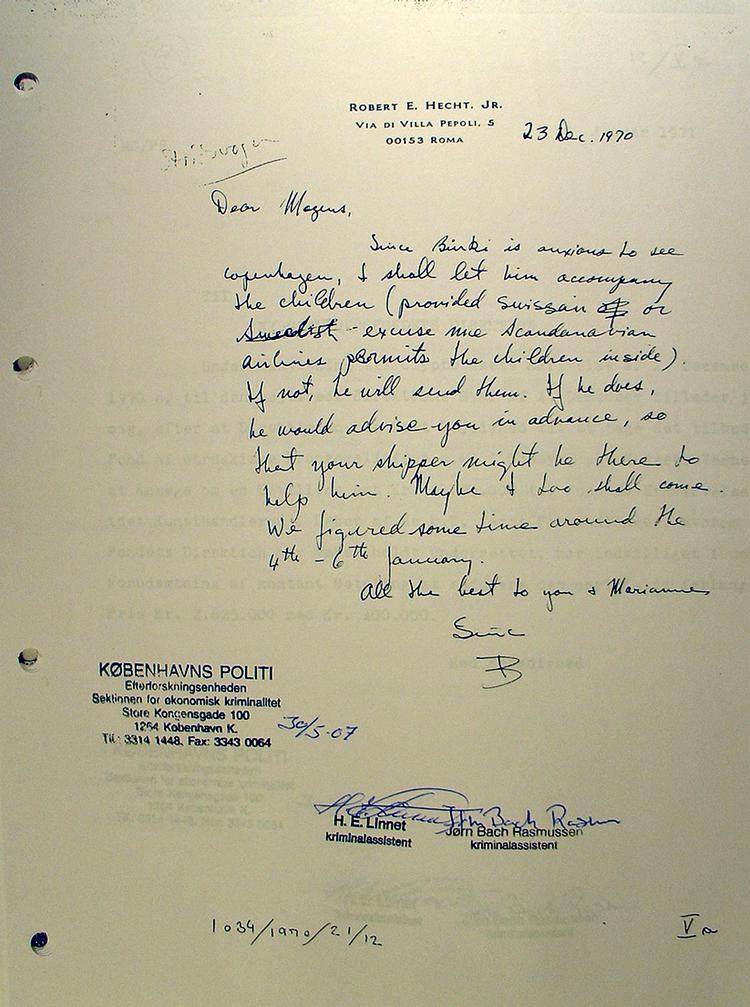 ROBERT E. HECHT, JR.
VIA DI VILLA PEPOLI, 5
00153 ROMA
23 Dec. 1970
Dear Mogens,
Since Binki is anxious to see
Copenhagen, I shall let him accompany
the children (provided Swissair or
Swedish - excuse me Scandanavian
airlines permits the children inside).
If not, he will send them. If he does,
he would advise you in advance, so
that your shipper might be there to
help him. Maybe I too shall come.
We figured some time around the
4th - 6th January.
All the best to you & Marianne
Sinc
B
KØBENHAVNS POLITI
Efterforskningsenheden
Sektionen for økonomisk kriminalitet
Store Kongensgade 100
1264 København K.
Tlf.: 3314 1448, Fax: 3343 0064
30/5-07
H. E. Linnet
kriminalassistent
Jørn Bach Rasmussen
Jørn Bach Rasmussen
kriminalassistent
1034/1970/21/12
V a